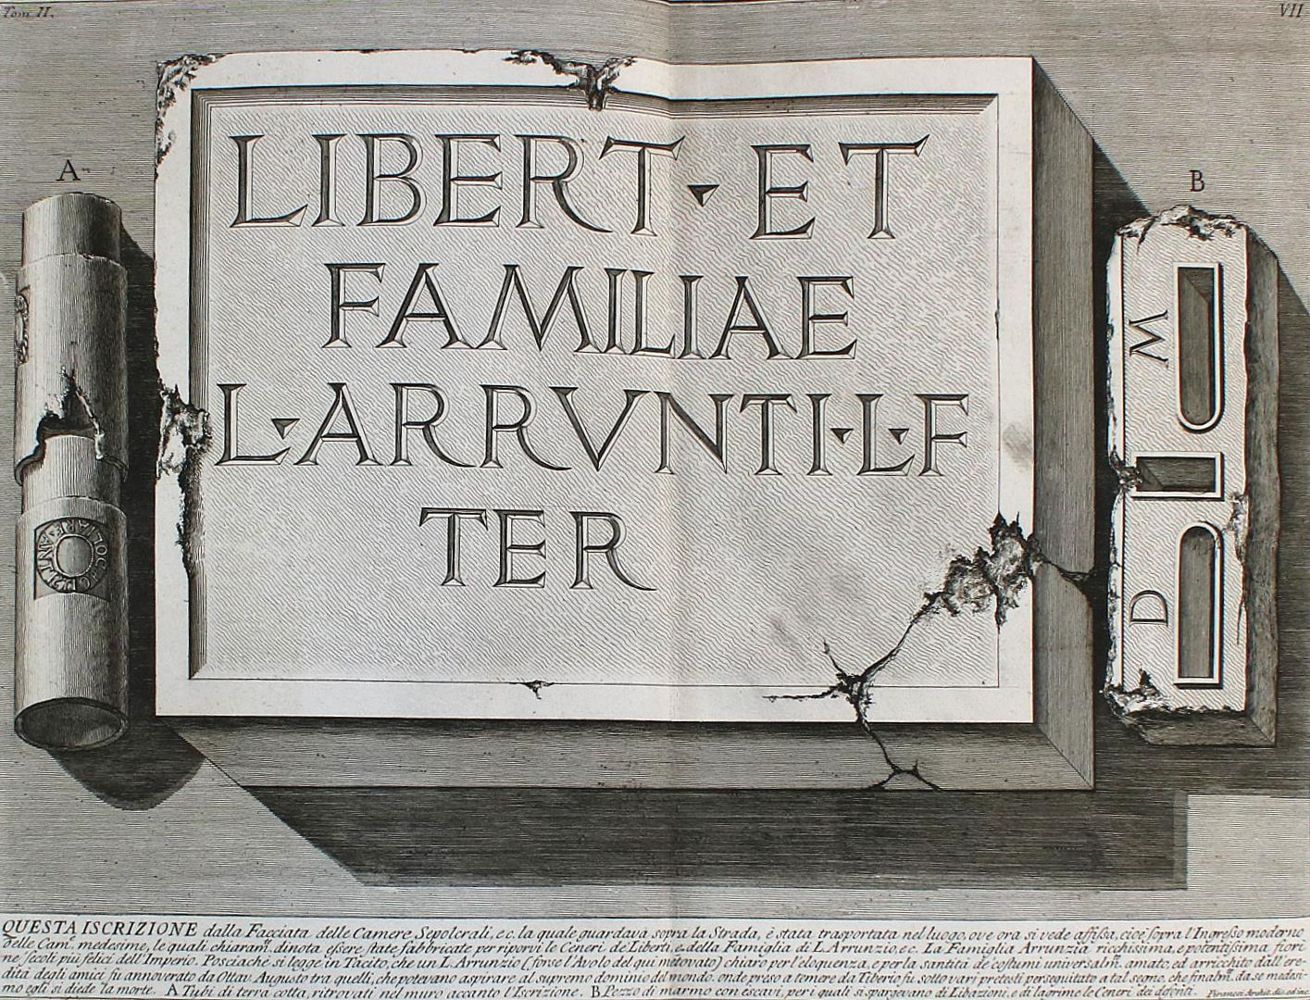 Tom. II.
VII
A
B
LIBERT · ET
FAMILIAE
L · ARRVNTI · L · F
TER
M
D
QUESTA ISCRIZIONE dalla Facciata delle Camere Sepolcrali, e.c. la quale guardava sopra la Strada, è stata trasportata nel luogo, ov'e ora si vede affissa, cioè sopra l'Ingresso moderno
delle Cam.e medesime, le quali chiaram.te dinota essere state fabbricate per riporvi le Ceneri de' Liberti, e della Famiglia di L. Arrunzio, e.c. La Famiglia Arrunzia ricchissima, e potentissima fiorì
ne' secoli più felici dell'Imperio. Posciachè si legge in Tacito, che un L. Arrunzio (forse l'Avolo del qui mentovato) chiaro per l'eloquenza, e per la santità de' costumi universalm.te amato, ed arricchito dall'ere-
dità degli amici fù annoverato da Ottav. Augusto tra quelli, che potevano aspirare al supremo dominio del mondo. onde preso a temere da Tiberio fù sotto vari pretesti perseguitato a tal segno, che finalm.te da se medesi-
mo egli si diede la morte. A Tubi di terra cotta, ritrovati nel muro accanto l'Iscrizione. B. Pezzo di marmo con escavi, per i quali si spargevano di Libazioni, e di lagrime le Ceneri de' defonti. Piranesi Archit. dis. ed inc.